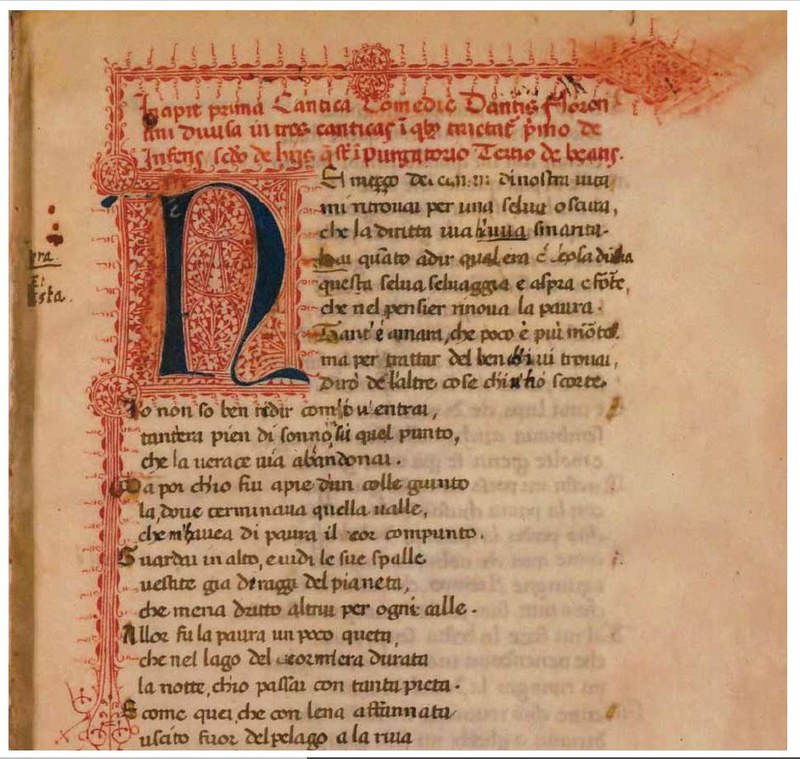 Incipit prima Cantica Comedie Dantis Floren
tini diuisa in tres canticas i qbz tractat pimo de
Inferis scdo de hijs q st i purgatorio Tertio de beatis.
NEl mezzo del camin di nostra uita
mi ritrouai per una selua oscura,
che la diritta uia smarita.
quato adir qual era è cosa dura
questa selua seluaggia e aspra e forte,
che nel pensier rinoua la paura.
Tant'è amara, che poco è più morte.
ma per trattar del ben ch'i ui trouai,
Dirò de l'altre cose ch'i u'hò scorte.
Io non so ben ridir com'io u'entrai,
tant'era pien di sonno sù quel punto,
che la uerace uia abandonai.
Ma poi ch'io fui apie d'un colle giunto
la, doue terminaua quella ualle,
che m'hauea di paura il cor compunto.
Guardai in alto, e uidi le sue spalle
uestite gia de raggi del pianeta,
che mena dritto altrui per ogni calle.
Allor fu la paura un poco queta,
che nel lago del cor m'era durata
la notte, ch'io passai con tanta pieta.
E come quei, che con lena affannata
uscito fuor del pelago a la riua